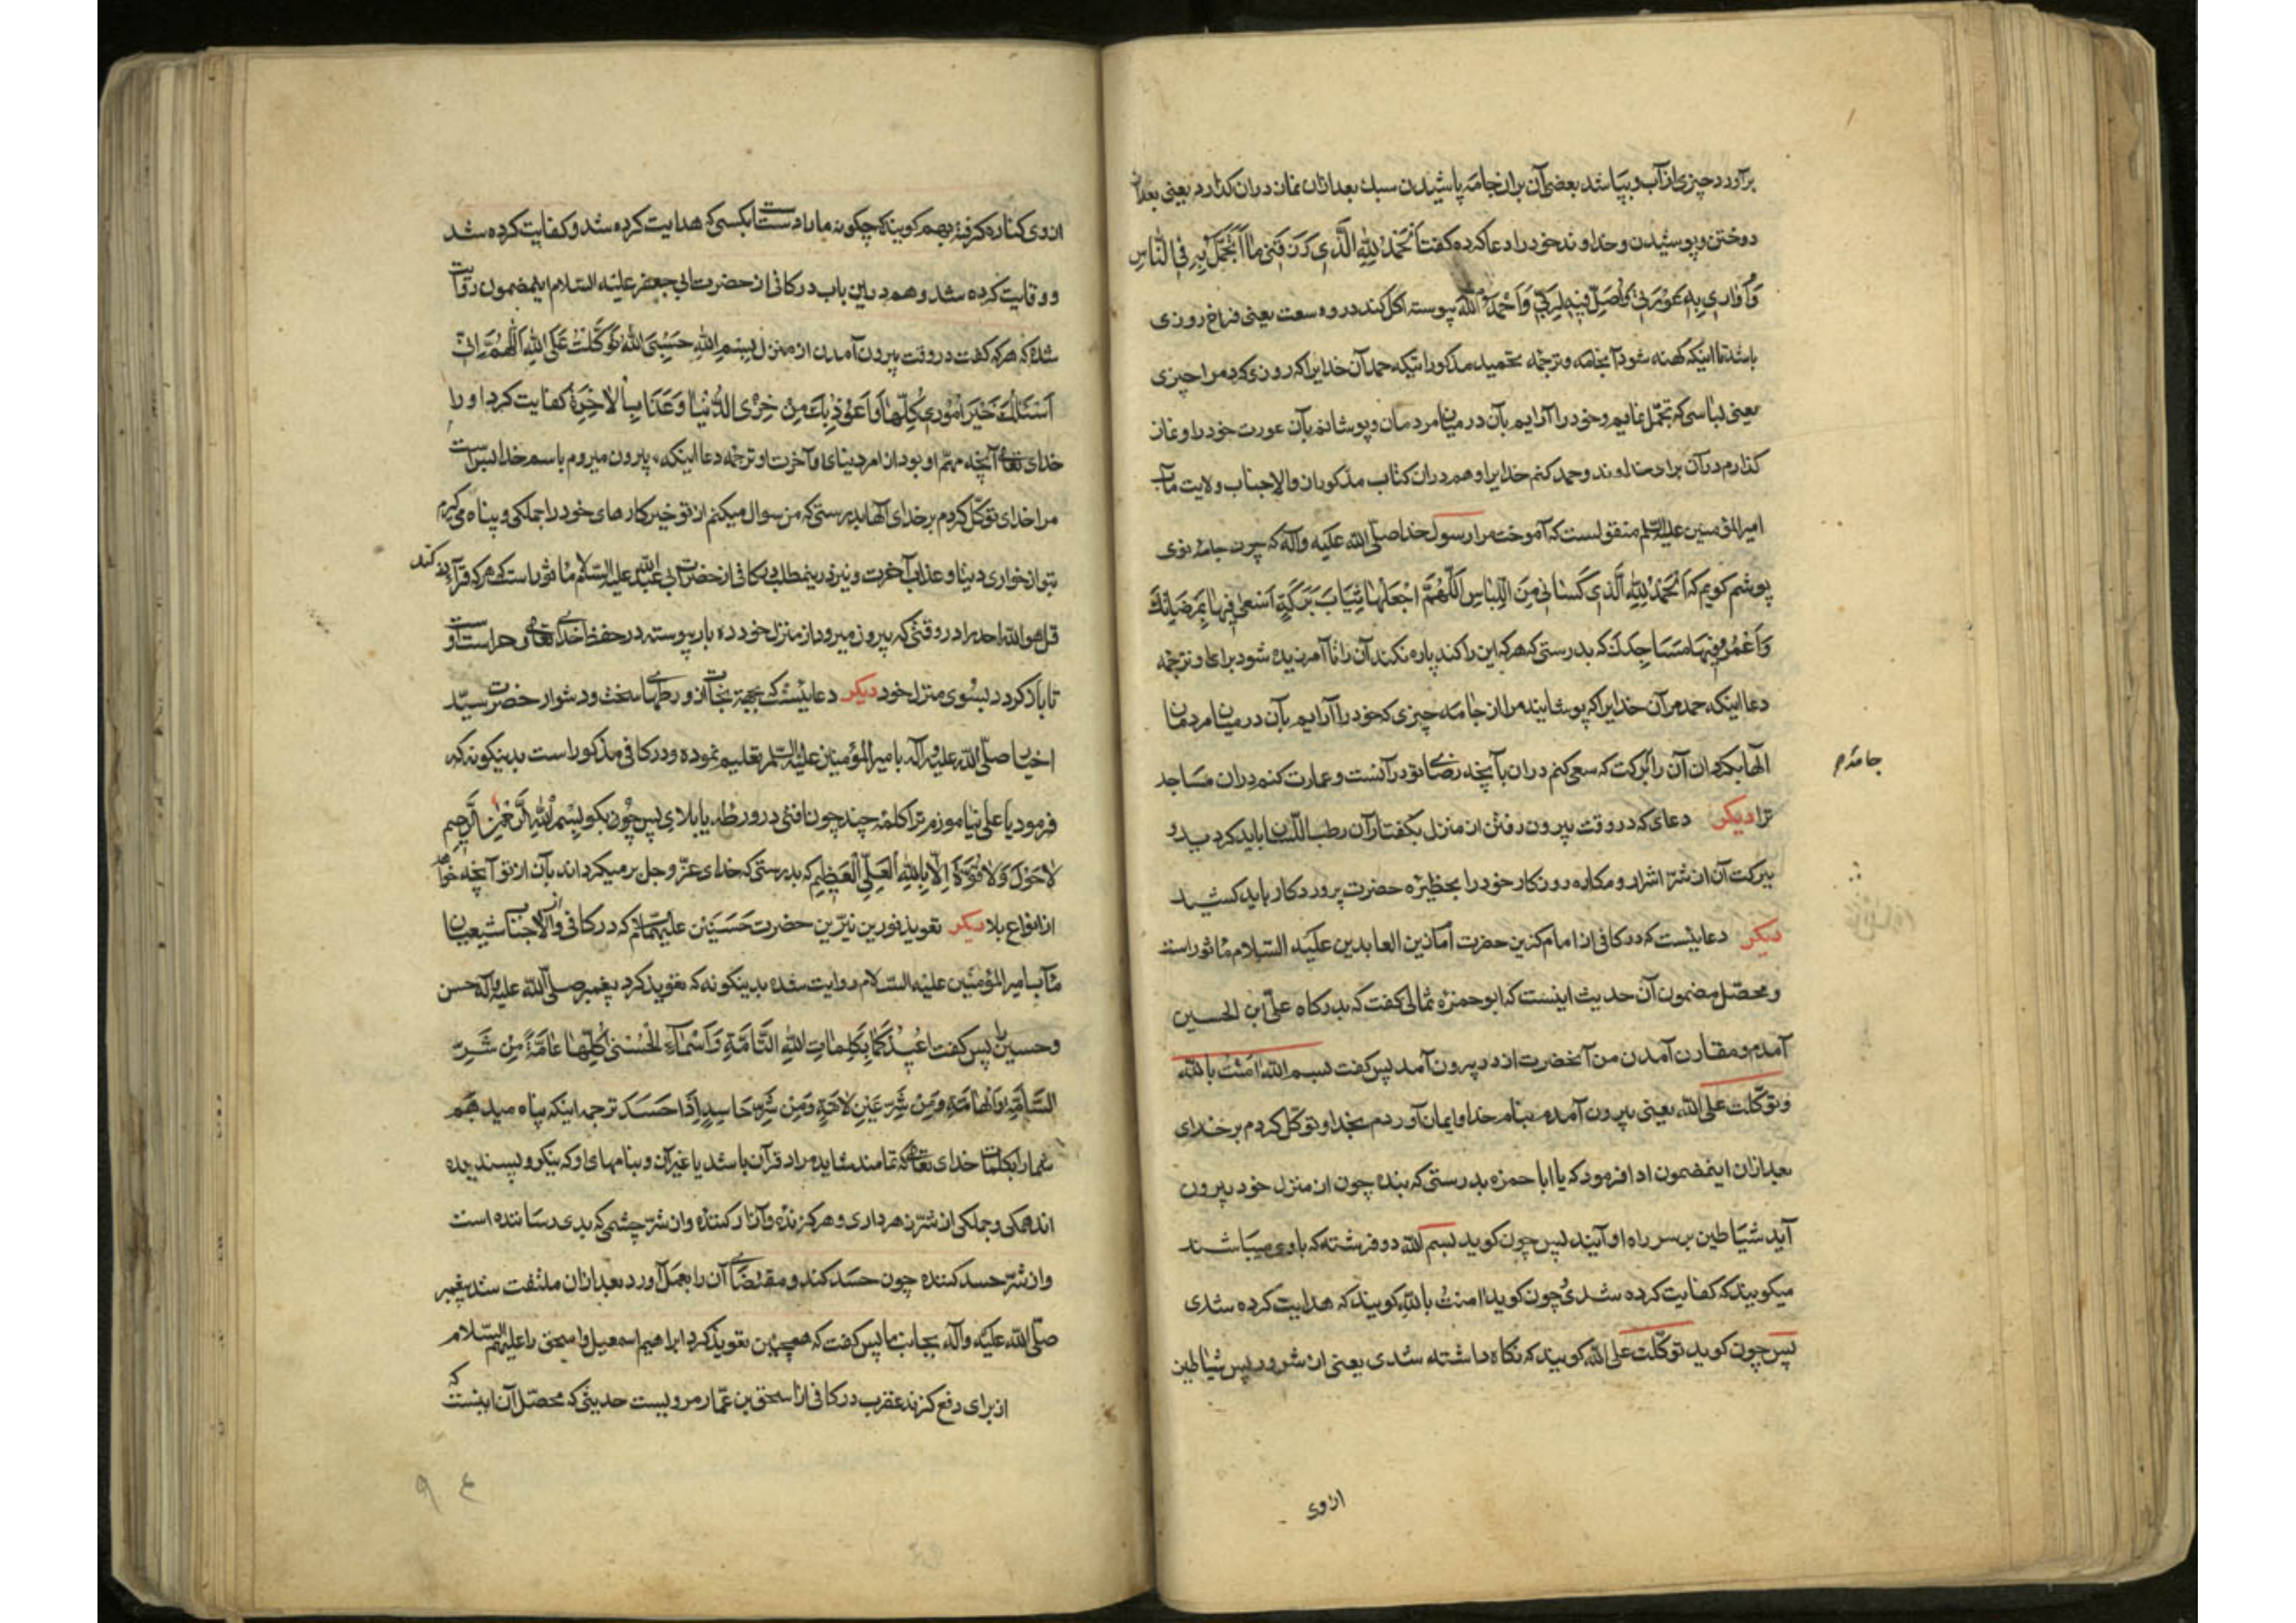 برآورد چیزی از آب و بپاشد بعضی آن بران جامه پاشیدن سبک بعد ازان نماز دران گذارد یعنی بعد از
دوختن و پوشیدن و خداوند خود را دعا کرده گفت اَلْحَمْدُ لِلّٰهِ الَّذی رَزَقَنی ما اَتَجَمَّلُ بِهِ فِی النّاسِ
وَاُواری بِهِ عَوْرَتی وَاُصَلّی فیهِ لِرَبّی وَاَحْمَدُ اللّٰهَ پیوسته اکل کند در وسعت یعنی فراخ روزی
باشد تا اینکه کهنه شود آنجامه و ترجمه تحمید مذکور اینکه حمد آن خدایرا که روزی کرد مرا چیزی
یعنی لباسی که تجمل نمایم و خود را آرایم بآن در میان مردمان و پوشانم بآن عورت خود را و نماز
گذارم در آن برای خداوند و حمد کنم خدایرا و هم دران کتاب مذکور ازان والاجناب ولایت مآب
امیرالمؤمنین علیه السلم منقولست که آموخت مرا رسول خدا صلی الله علیه وآله که چون جامه نوی
پوشم گویم که اَلْحَمْدُ لِلّٰهِ الَّذی کَسانی مِنَ اللِّباسِ اَللّٰهُمَّ اجْعَلْها ثِیابَ بَرَکَةٍ اَسْعی فیها بِمَرْضاتِکَ
وَاَعْمُرُ فیها مَساجِدَکَ که بدرستی که هر که این را کند پاره نکند آن را تا آمرزیده شود برای او ترجمه
دعا اینکه حمد مر آن خدایرا که پوشانید مرا از جامه چیزی که خود را آرایم بآن در میان مردمان
الها بگردان آن را برکت که سعی کنم دران بآنچه رضای تو در آنست و عمارت کنم دران مساجد
جامه م
ترا دیکر دعای که در وقت بیرون رفتن از منزل بگفتار آن رطب اللسان باید کرد بدو
ببرکت آن از شر اشرار و مکاره روزگار خود را بحظیره حضرت پروردگار باید کشید
دیکر دعائیست که در کافی از امام گزین حضرت امام زین العابدین علیه السلام ماثور است
و محصل مضمون آن حدیث اینست که ابوحمزه ثمالی گفت که بدرگاه علی ابن الحسین
آمدم و مقارن آمدن من آنحضرت از در بیرون آمد پس گفت بسم الله امنت بالله
وتوکلت علی الله یعنی بیرون آمدم بنام خدا و ایمان آوردم بخدا و توکل کردم برخدای
بعد ازان اینمضمون ادا فرمود که یا ابا حمزه بدرستی که بنده چون از منزل خود بیرون
آید شیاطین بر سر راه او آیند پس چون گوید بسم الله دو فرشته که با وی میباشند
میگویند که کفایت کرده شدی و چون گوید امنت بالله گویند که هدایت کرده شدی
پس چون گوید توکلت علی الله گویند که نگاه داشته شدی یعنی از شرور پس شیاطین
ازوی
ازوی کناره گرفته بهم گویند که چگونه ما را دست است بکسی که هدایت کرده شد و کفایت کرده شد
و وقایت کرده شد و هم درین باب در کافی از حضرت ابی جعفر علیه السلام اینمضمون روایت
شده که هر که گفت در وقت بیرون آمدن از منزل بِسْمِ اللّٰهِ حَسْبِیَ اللّٰهُ تَوَکَّلْتُ عَلَی اللّٰهِ اَللّٰهُمَّ اِنّی
اَسْئَلُکَ خَیْرَ اُمُوری کُلِّها وَاَعُوذُ بِکَ مِنْ خِزْیِ الدُّنْیا وَعَذابِ الاخِرَةِ کفایت کرد او را
خدای تعالی آنچه مهم او بود از امر دنیا و آخرت او ترجمه دعا اینکه بیرون میروم باسم خدا بس است
مرا خدای توکل کردم بر خدای الها بدرستی که من سوال میکنم از تو خیر کارهای خود را جملگی و پناه می گیرم
بتو از خواری دنیا و عذاب آخرت و نیز درینمطلب در کافی از حضرت ابی عبدالله علیه السلام ماثور است که هر که قرآءت کند
قل هو الله احد را در وقتی که بیرون میرود از منزل خود ده بار پیوسته در حفظ خدای تعالی و حراست او
تا باز گردد بسوی منزل خود دیکر دعائیست که بجهة نجات از ورطهای سخت و دشوار حضرت سید
اخیار صلی الله علیه وآله بامیرالمؤمنین علیه السلم تعلیم نموده و در کافی مذکور است بدینگونه که
فرمود یا علی بیاموزم ترا کلمه چند چون افتی در ورطه یا بلای پس چون بگو بِسْمِ اللّٰهِ الرَّحْمٰنِ الرَّحیمِ
لاحَوْلَ وَلاقُوَّةَ اِلّا بِاللّٰهِ الْعَلِیِّ الْعَظیمِ که بدرستی که خدای عز و جل بر میگرداند بآن از تو آنچه خواهد
از انواع بلا دیکر تعویذ نورین نیرین حضرت حسنین علیهما السلم که در کافی از والاجناب شیعیان
مآب امیرالمؤمنین علیه السلام روایت شده بدینگونه که تعویذ کرد پیغمبر صلی الله علیه وآله حسن
وحسین را پس گفت اُعیذُکُما بِکَلِماتِ اللّٰهِ التّامَّةِ وَاَسْمائِهِ الْحُسْنی کُلِّها عامَّةً مِنْ شَرِّ
السّامَّةِ وَالْهامَّةِ وَمِنْ شَرِّ عَیْنٍ لامَّةٍ وَمِنْ شَرِّ حاسِدٍ اِذا حَسَدَ ترجمه اینکه پناه میدهم
شما را بکلمات خدای تعالی که تمامند شاید مراد قرآن باشد یا غیر آن و بنامهای او که نیکو و پسندیده
اند همگی و جملگی از شر زهرداری و هر گزنده و آزار کننده و از شر چشمی که بدی رساننده است
و از شر حسد کننده چون حسد کند و مقتضای آن را بعمل آورد بعد ازان ملتفت شد پیغمبر
صلی الله علیه وآله بجانب ما پس گفت که همچنین تعویذ کرد ابراهیم اسمعیل و اسحق را علیهم السلام
از برای دفع گزند عقرب در کافی از اسحق بن عمار مرویست حدیثی که محصل آن اینست که